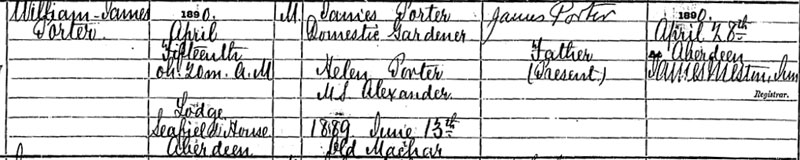 William James
Porter
1890.
April
Fifteenth
0h. 20m. A.M
Lodge
Seafield House
Aberdeen
M.
James Porter
Domestic Gardener
Helen Porter
M.S. Alexander
1889 June 13th
Old Machar
James Porter
Father
(Present)
1890.
April 28th
Aberdeen
James
Registrar.